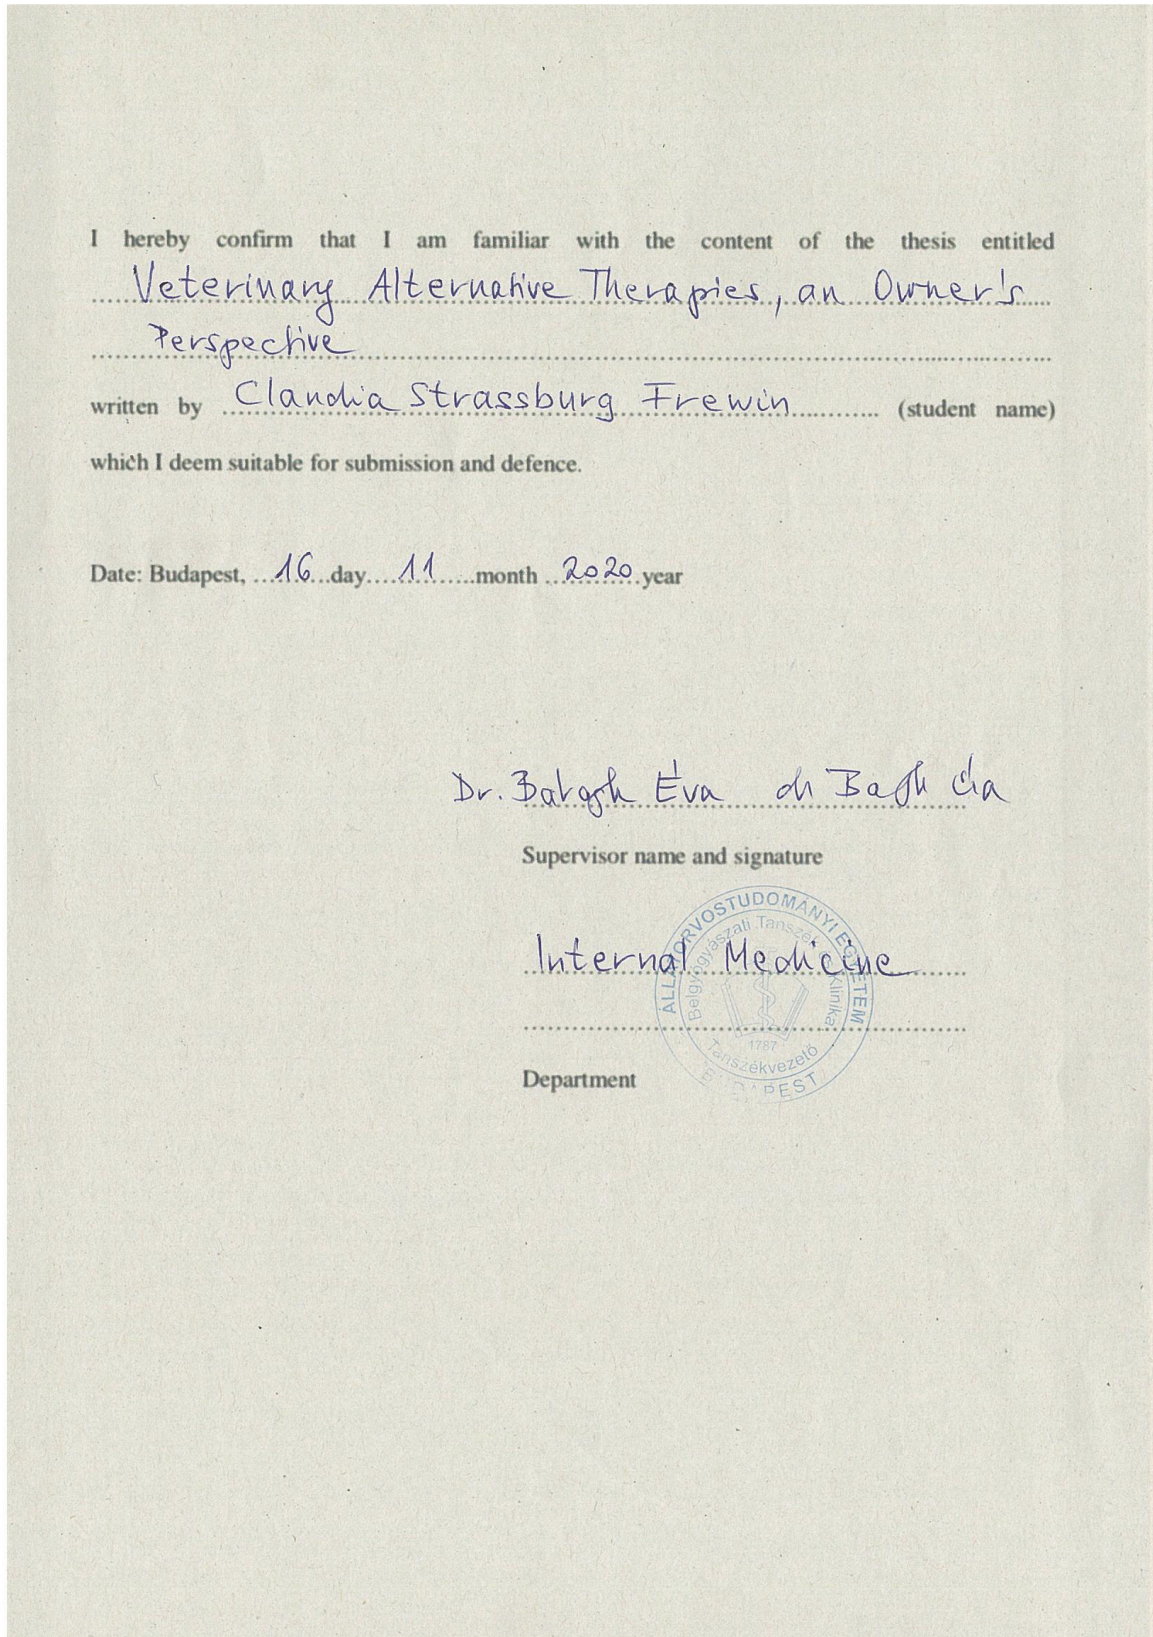 I hereby confirm that I am familiar with the content of the thesis entitled
Veterinary Alternative Therapies, an Owner's
Perspective
written by Claudia Strassburg Frewin (student name)
which I deem suitable for submission and defence.
Date: Budapest, 16 day 11 month 2020 year
Dr. Balogh Éva dr Balogh Éva
Supervisor name and signature
ÁLLATORVOSTUDOMÁNYI EGYETEM
Belgyógyászati Tanszék Klinika
Internal Medicine
1787
Tanszékvezető
BUDAPEST
Department